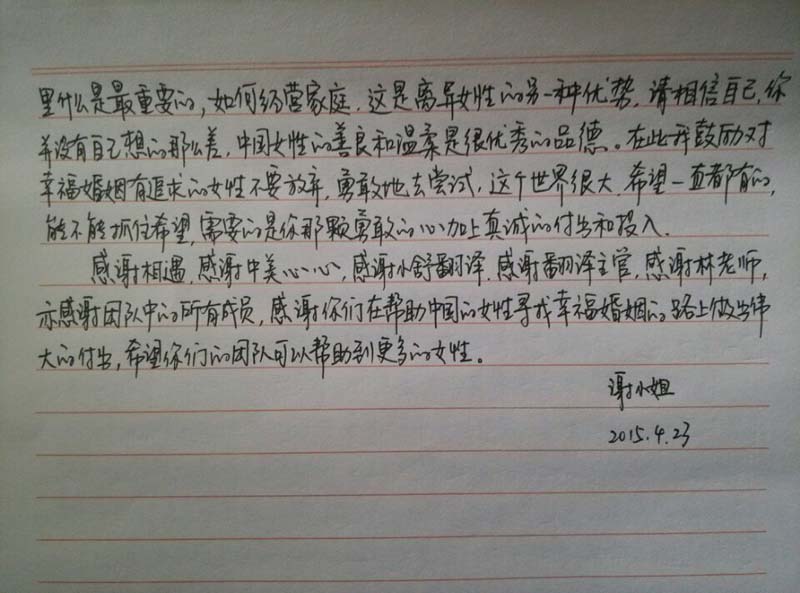 里什么是最重要的，如何经营家庭，这是离异女性的另一种优势，请相信自己，你
并没有自己想的那么差，中国女性的善良和温柔是很优秀的品德。在此我鼓励对
幸福婚姻有追求的女性不要放弃，勇敢地去尝试，这个世界很大，希望一直都有的，
能不能抓住希望，需要的是你那颗勇敢的心加上真诚的付出和投入．
感谢相遇，感谢中美心心，感谢小舒翻译，感谢翻译主管，感谢林老师，
亦感谢团队中的所有成员，感谢你们在帮助中国的女性寻找幸福婚姻的路上做出伟
大的付出，希望你们的团队可以帮助到更多的女性。
谢小姐
2015.4.23